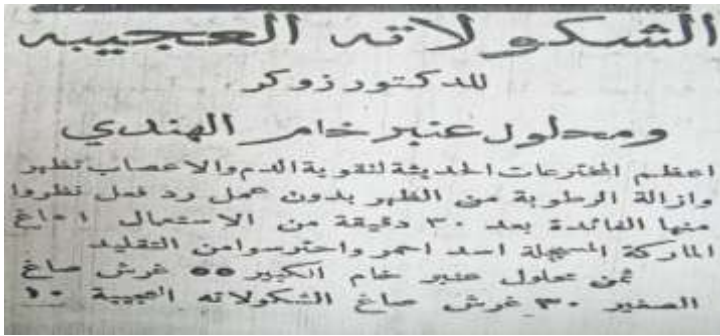 الشكولاته العجيبه
للدكتور زوكر
ومحلول عنبر خام الهندي
اعظم المخترعات الحديثة لتقوية الدم والاعصاب تظهر
وازالة الرطوبة من الظهر بدون عمل رد فعل تظروا
منها الفائدة بعد ٣٠ دقيقة من الاستعمال
الماركة المسجلة اسد احمر واحترسوا من التقليد
ثمن محلول عنبر خام الكبير ٥٥ غرش صاغ
الصغير ٣٠ غرش صاغ الشكولاته العجيبة ١٠